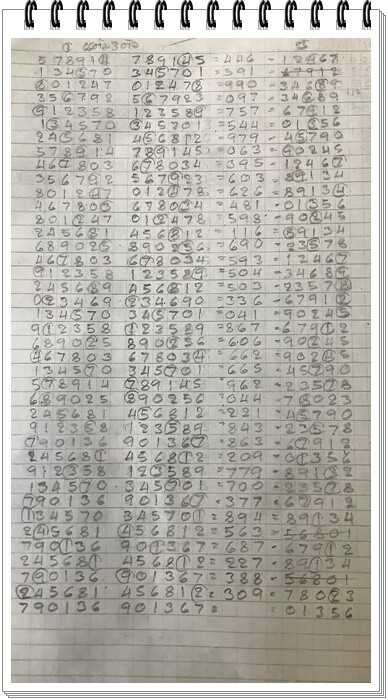 578914 789145 = 446 - 12467
134570 345701 = 591 - 67912
801247 012478 = 990 - 34689
356792 567923 = 097 - 34689
912358 123589 = 757 - 67912
134570 345701 = 544 - 01356
245681 456812 = 979 - 45790
578914 789145 = 063 - 90245
467803 678034 = 395 - 12467
356792 567923 = 603 - 89134
801247 012478 = 626 - 89134
467803 678034 = 481 - 01356
801247 012478 = 598 - 90245
245681 456812 = 116 - 89134
689025 890256 = 690 - 23578
467803 678034 = 593 - 12467
912358 123589 = 504 - 34689
245689 456812 = 503 - 23578
023469 234690 = 336 - 67912
134570 345701 = 041 - 90245
912358 123589 = 867 - 67912
689025 890256 = 606 - 90245
467803 678034 = 662 - 90245
134570 345701 = 665 - 45790
578914 789145 = 962 - 23578
689025 890256 = 044 - 78023
245681 456812 = 221 - 45790
912358 123589 = 843 - 23578
790136 901367 = 863 - 67912
245681 456812 = 209 - 01356
912358 123589 = 779 - 89132
134570 345701 = 700 - 23578
790136 901367 = 377 - 67912
134570 345701 = 894 - 89134
245681 456812 = 563 - 56801
790136 901367 = 687 - 67912
245681 456812 = 227 - 89134
790136 901367 = 388 - 56801
245681 456812 = 309 = 78023
790136 901367 = = 01356